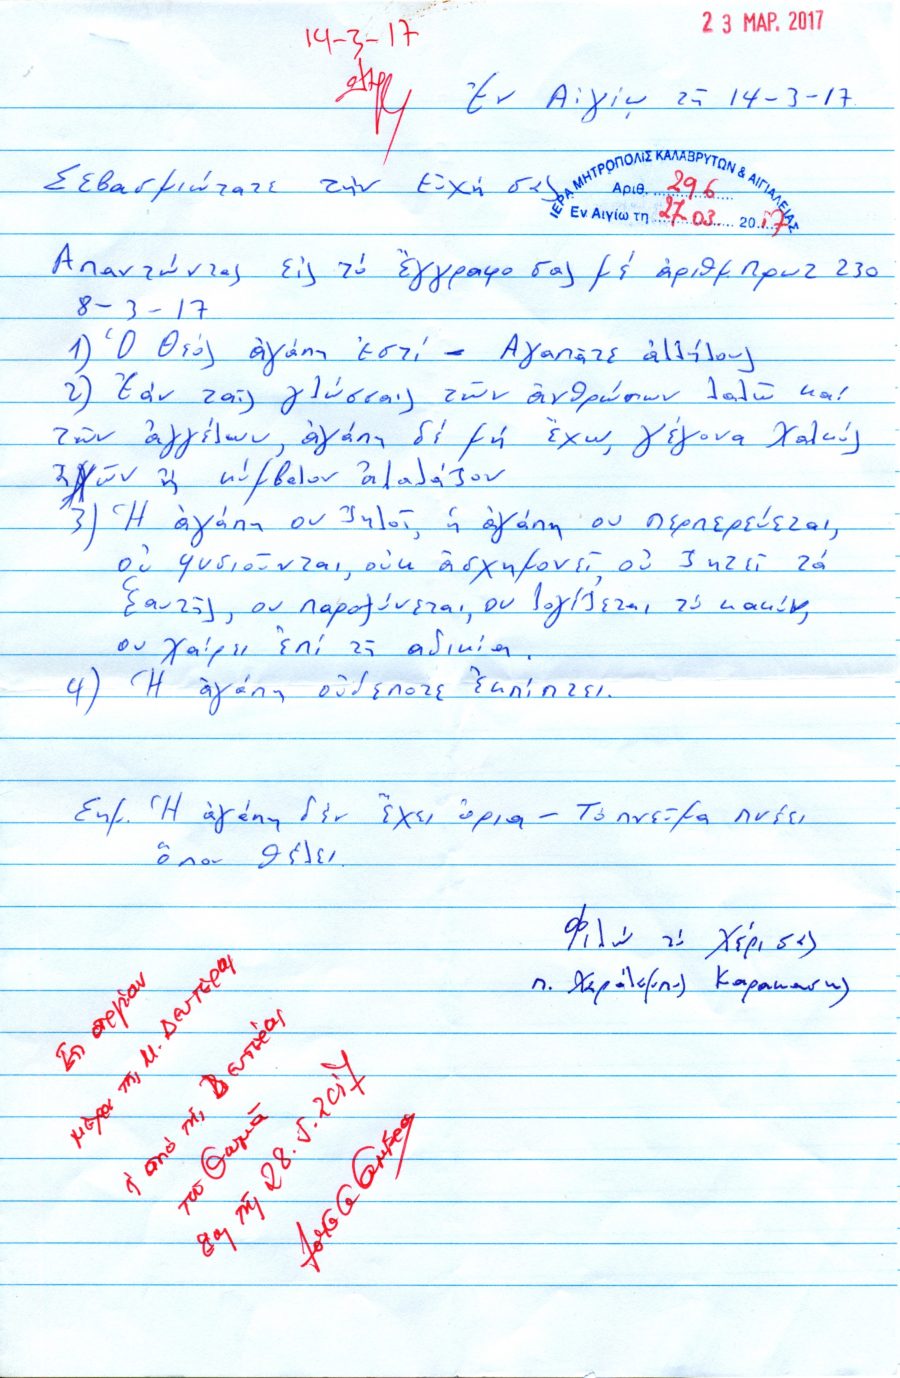 23 ΜΑΡ. 2017
14-3-17
Ἐν Αἰγίῳ τῇ 14-3-17
Σεβασμιώτατε τήν εὐχή σας
ΙΕΡΑ ΜΗΤΡΟΠΟΛΙΣ ΚΑΛΑΒΡΥΤΩΝ & ΑΙΓΙΑΛΕΙΑΣ
Αριθ. 296
Εν Αιγίω τη 27 03 2017
Απαντώντας εἰς τό ἔγγραφο σας μέ ἀριθμ Πρωτ 230
8-3-17
1) Ὁ Θεός ἀγάπη ἐστί - Αγαπᾶτε ἀλλήλους
2) Ἐάν ταῖς γλώσσαις τῶν ἀνθρώπων λαλῶ καί
τῶν ἀγγέλων, ἀγάπη δέ μή ἔχω, γέγονα χαλκός
ἠχῶν ἤ κύμβαλον ἀλαλάζον
3) Ἡ ἀγάπη ου ζηλοῖ, ἡ ἀγάπη ου περπερεύεται,
οὐ φυσιοῦνται, οὐκ ἀσχημονεῖ, οὐ ζητεῖ τά
ἑαυτῆς, ου παροξύνεται, ου λογίζεται τό κακόν,
ου χαίρει ἐπί τῇ αδικία.
4) Ἡ ἀγάπη οὐδεποτε ἐκπίπτει.
Σημ. Ἡ ἀγάπη δέν ἔχει ὅρια - Τό πνεῦμα πνέει
ὅπου θέλει.
Φιλῶ τό χέρι σας
π. Χαράλαμπος Καρακασης
Εις αργίαν
μέχρι τῆς Μ. Δευτέρας
ἤ από τῆς Δευτέρας
τοῦ Θωμᾶ
ἕως τῆς 28.5.2017